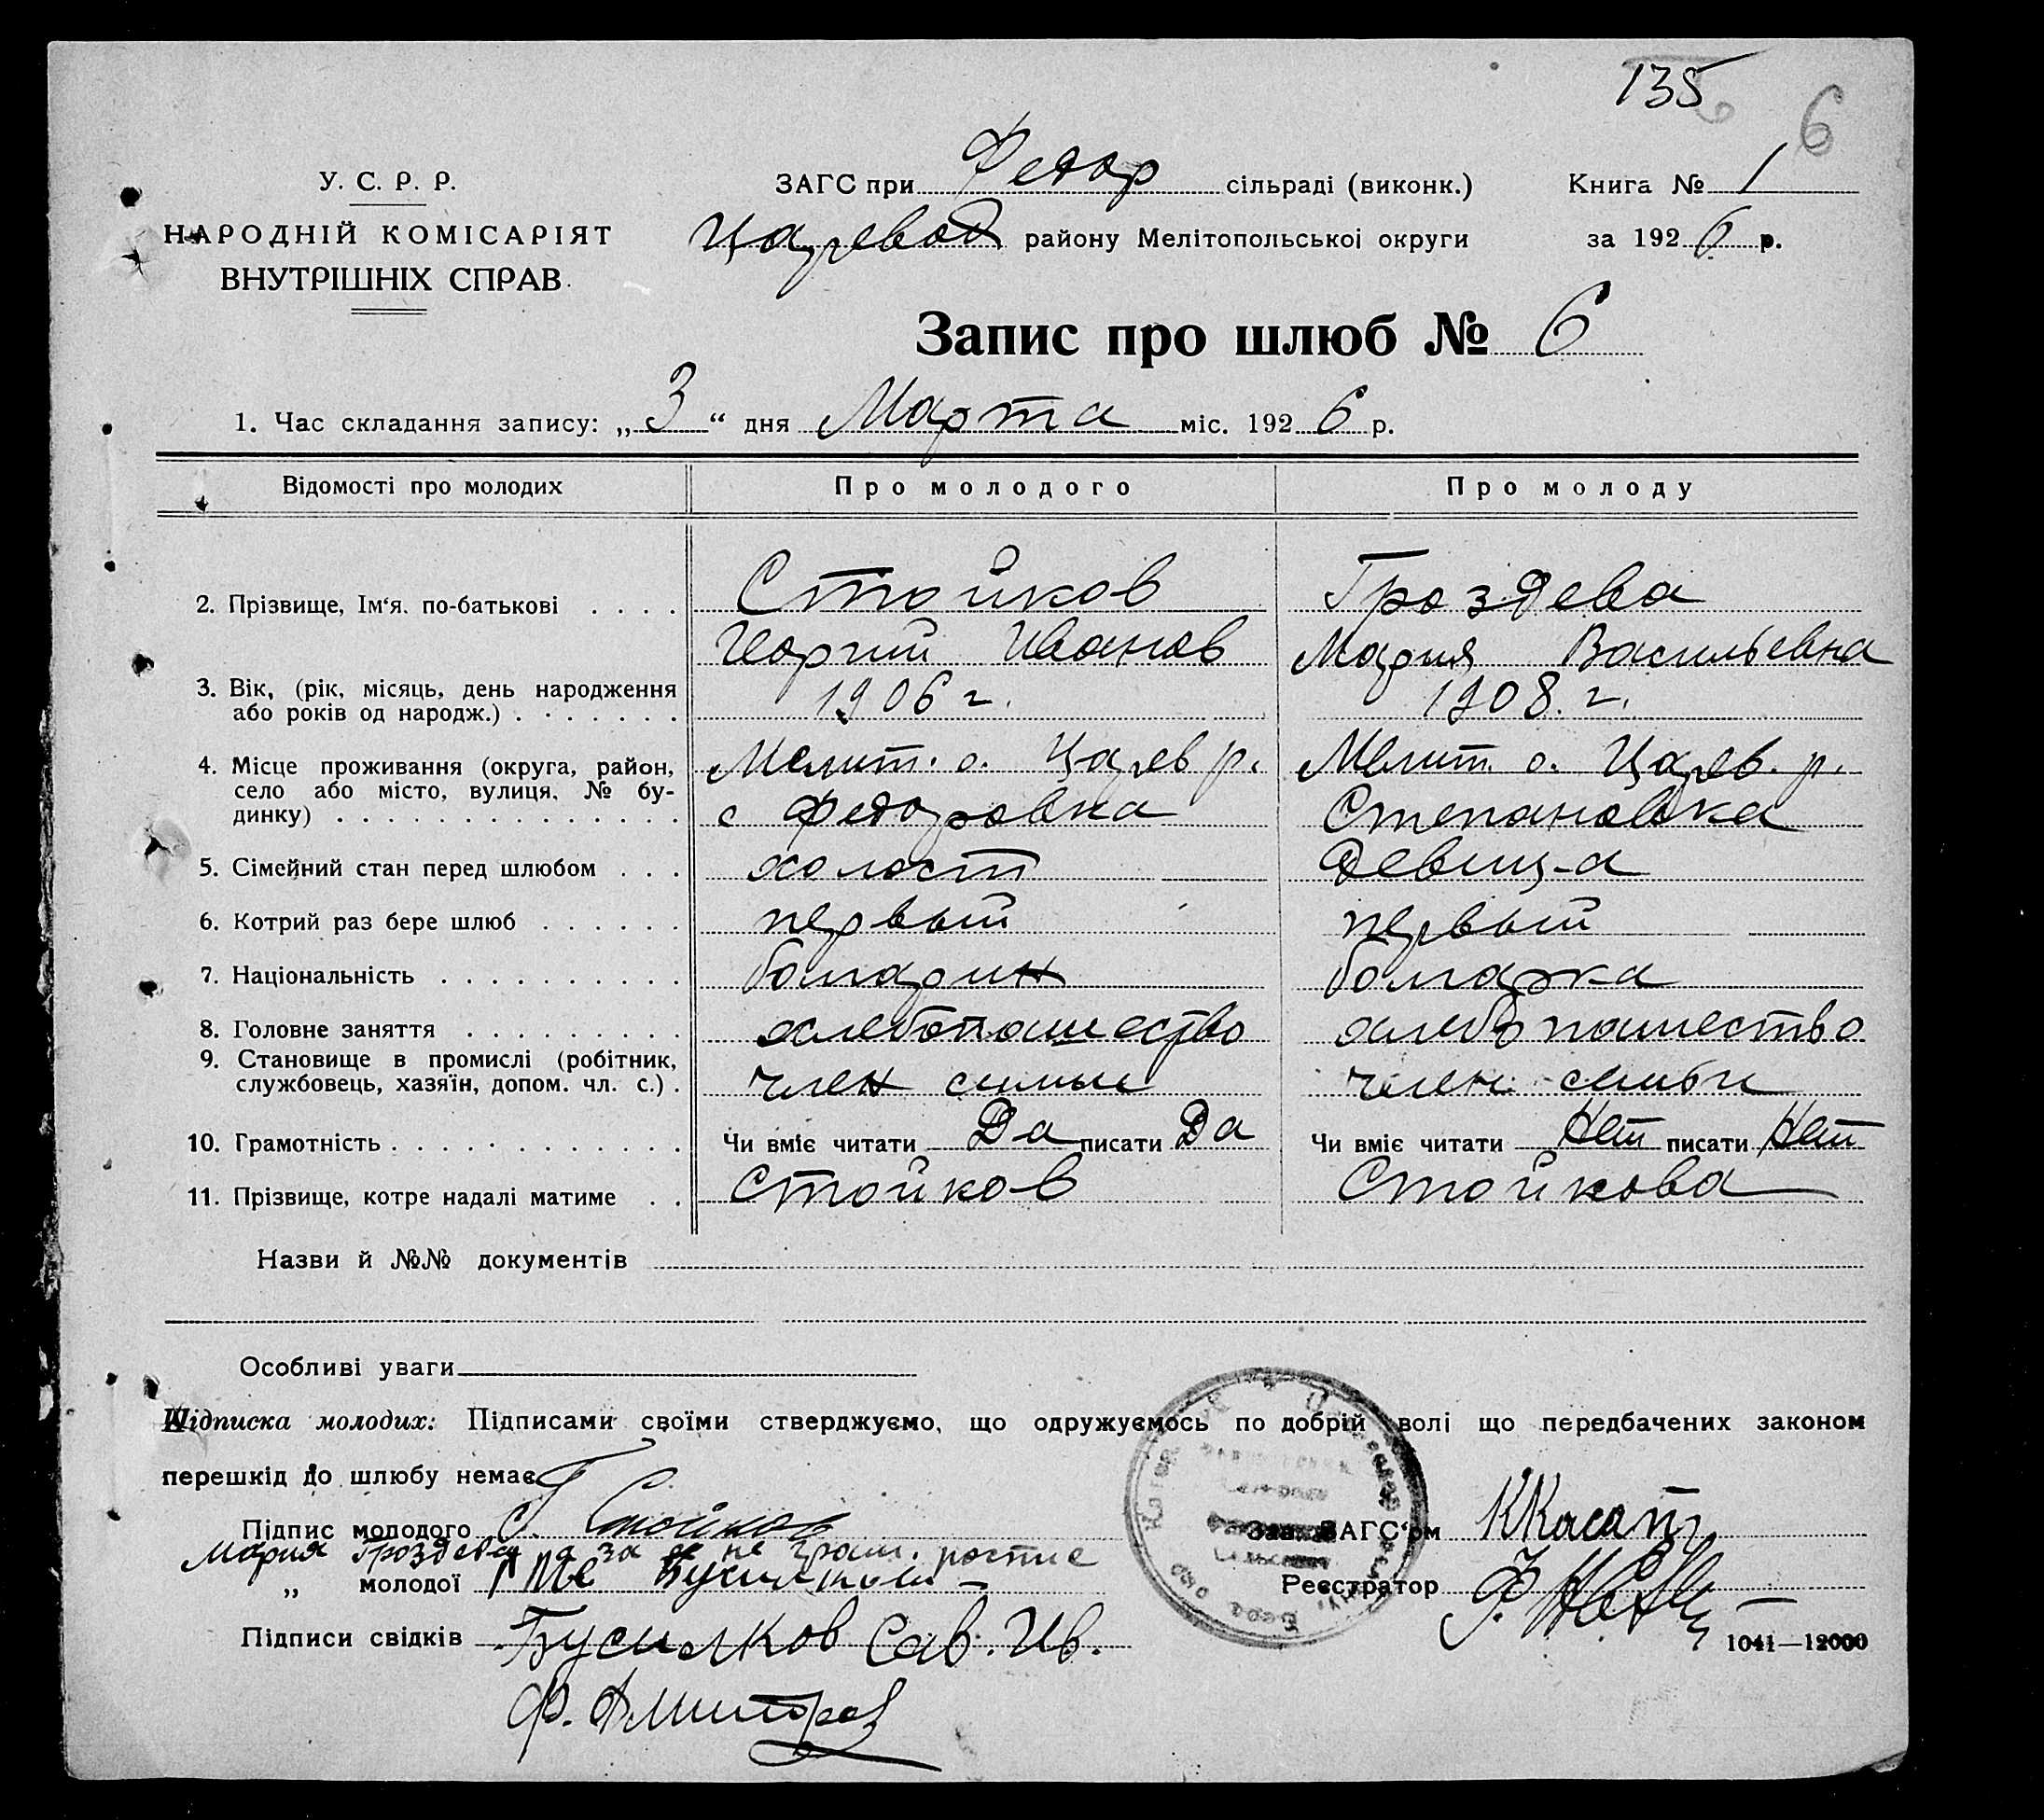 135
6
У. С. Р. Р.
НАРОДНІЙ КОМІСАРІЯТ
ВНУТРІШНІХ СПРАВ
ЗАГС при Федор сільраді (виконк.) Книга № 1
Царевод району Мелітопольскоі округи за 1926 р.
Запис про шлюб № 6
1. Час складання запису: „3“ дня Марта міс. 1926 р.
Відомості про молодих Про молодого Про молоду
2. Прізвище, Ім'я, по-батькові . . . . Стойков Гроздева
Георгий Иванов Мария Васильевна
3. Вік, (рік, місяць, день народження або років од народж.) . . . . . . . 1906 г. 1908. г.
4. Місце проживання (округа, район, Мелит. о. Царев р. Мелит. о. Царев. р.
село або місто, вулиця, № бу-
динку) . . . . . . . . . . . . . . с Федоровка Степановка
5. Сімейний стан перед шлюбом . . . холост девиц-а
6. Котрий раз бере шлюб . . . . . . первый первый
7. Національність . . . . . . . . . . болгарин болгарка
8. Головне заняття . . . . . . . . . хлебопашество хлебопашество
9. Становище в промислі (робітник,
службовець, хазяїн, допом. чл. с.) . член симьи член семьи
10. Грамотність . . . . . . . . . . . . Чи вміє читати Да писати Да Чи вміє читати Нет писати Нет
11. Прізвище, котре надалі матиме . . Стойков Стойкова
Назви й №№ документів
Особливі уваги
Підписка молодих: Підписами своїми стверджуємо, що одружуємось по добрій волі що передбачених законом
перешкід до шлюбу немає.
Підпис молодого Г. Стойков Зав. ЗАГС'ом ККасап
Мария Гроздева а за ее не грам. роспис
„ молодої Реєстратор
Підписи свідків Бусилков Сав. Ив.
1041—12000
Ф. Дмитров